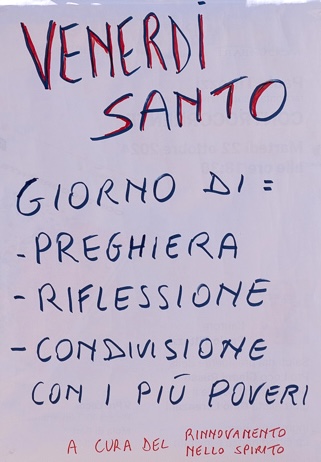 VENERDÌ
SANTO
GIORNO DI =
- PREGHIERA
- RIFLESSIONE
- CONDIVISIONE
CON I PIÚ POVERI
A CURA DEL RINNOVAMENTO
NELLO SPIRITO